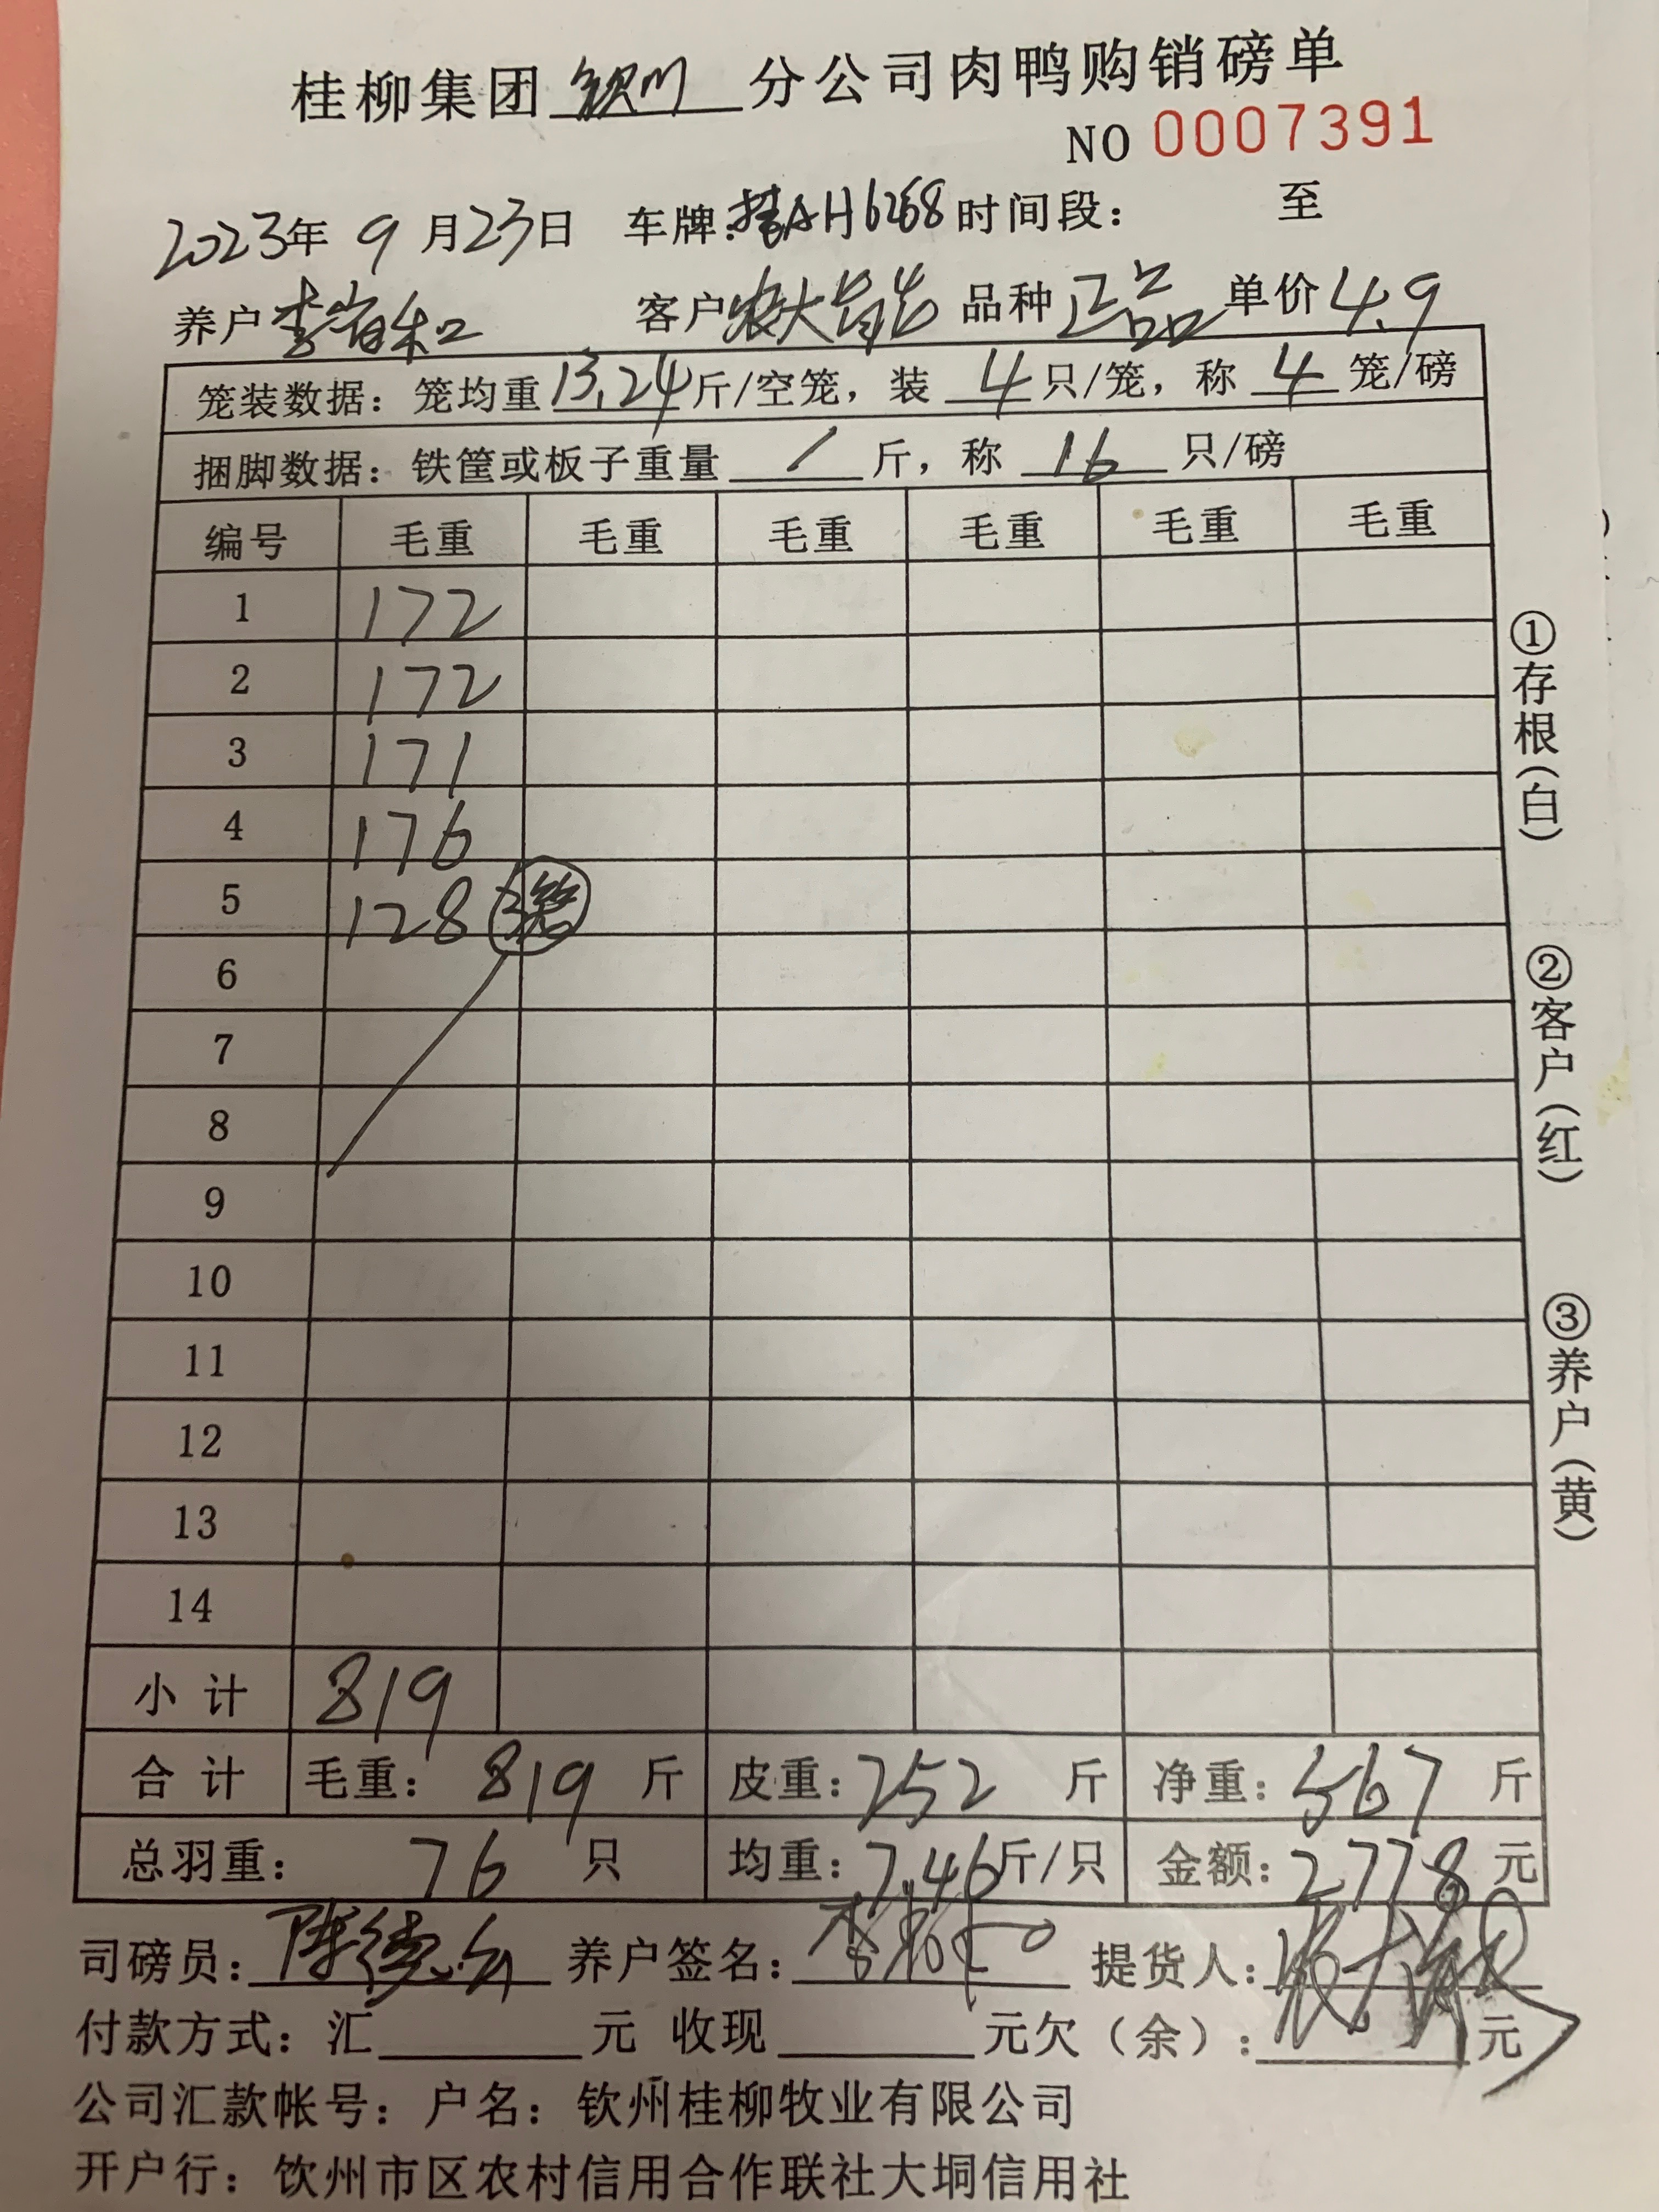 桂柳集团 钦州 分公司肉鸭购销磅单
NO 0007391
2023年 9 月23日 车牌:桂AH6268 时间段： 至
养户 李 客户 农大 品种 正品 单价 4.9
笼装数据：笼均重 13.24 斤/空笼，装 4 只/笼，称 4 笼/磅
捆脚数据：铁筐或板子重量 / 斤，称 16 只/磅
编号 毛重 毛重 毛重 毛重 毛重 毛重
1 172
2 172
3 171
4 176
5 128 3笼
6
7
8
9
10
11
12
13
14
小 计 819
合 计 毛重： 819 斤 皮重：252 斤 净重：567 斤
总羽重： 76 只 均重：7.46斤/只 金额：2778 元
司磅员： 陈 养户签名： 李 提货人：
付款方式：汇 元 收现 元欠（余）： 元
公司汇款帐号：户名：钦州桂柳牧业有限公司
开户行：饮州市区农村信用合作联社大垌信用社
①存根（白）
②客户（红）
③养户（黄）